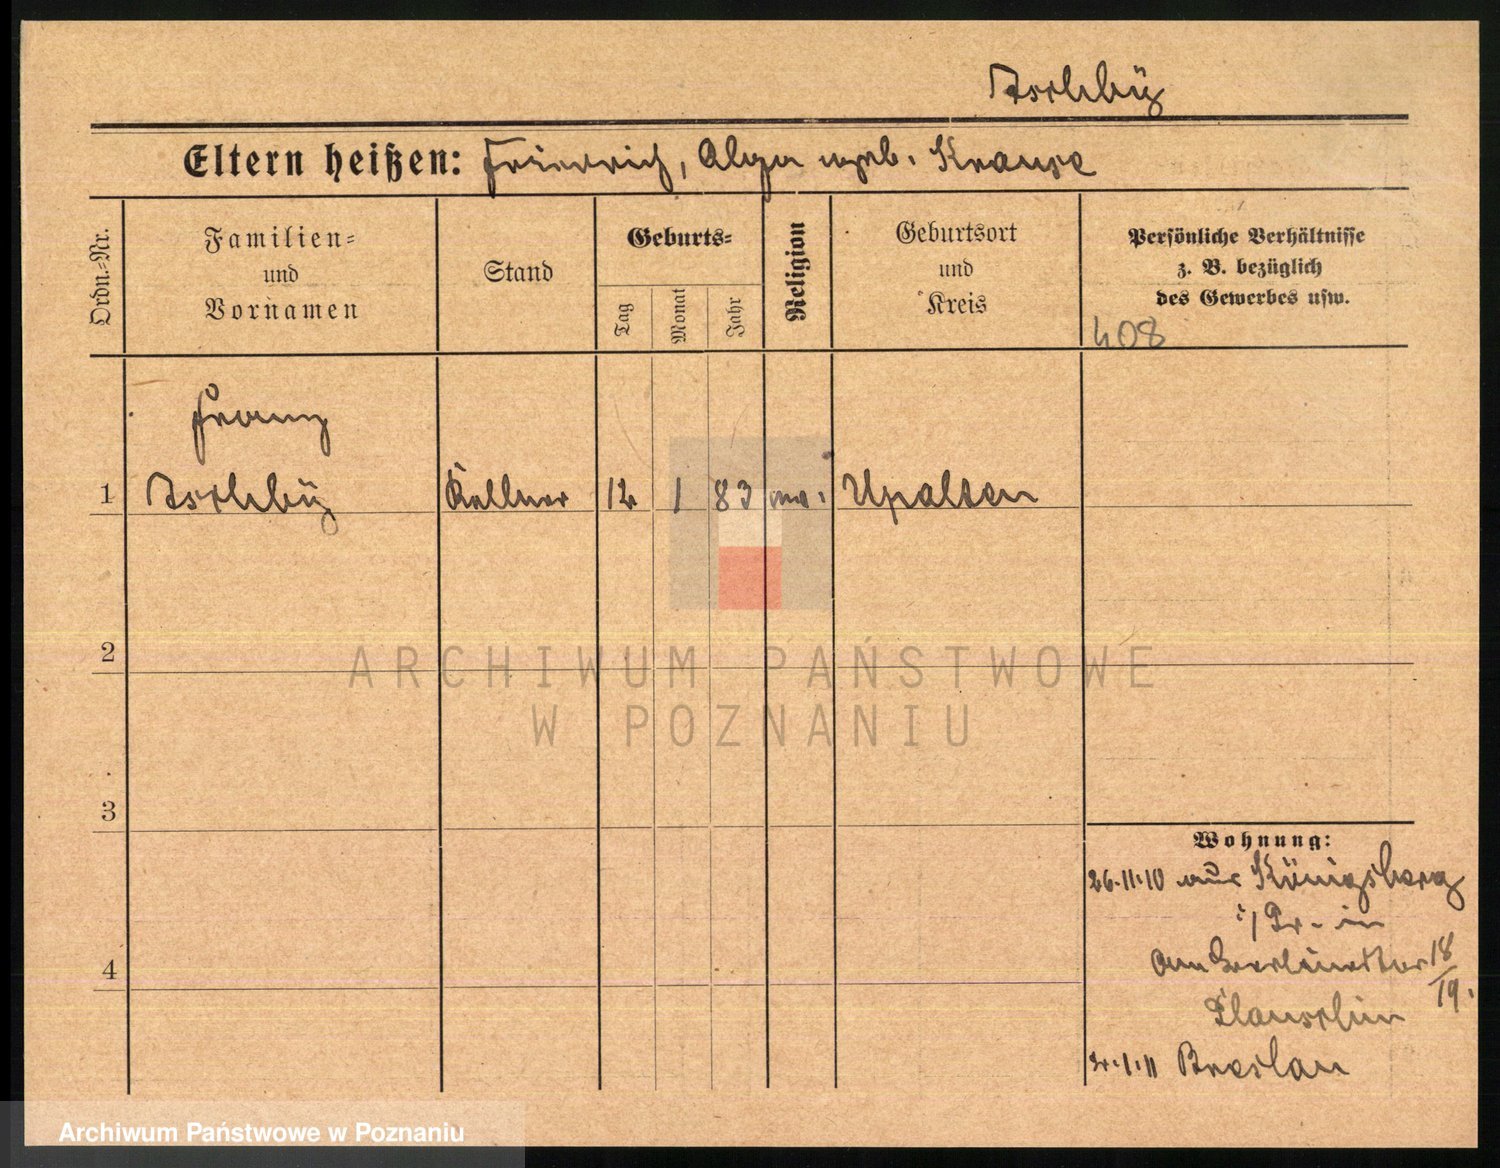 Eltern heißen: Friedrich, Olga geb. Krause
Ordn.-Nr.
Familien-
und
Vornamen
Stand
Geburts-
Tag
Monat
Jahr
Religion
Geburtsort
und
Kreis
Persönliche Verhältnisse
z. B. bezüglich
des Gewerbes usw.
408
Franz
1 Kellner 12 1 83 Upalten
2
3
4
Wohnung:
26.11.10 aus Königsberg
i/Pr. in
Am Berlinertor 18/19.
Breslau
ARCHIWUM PAŃSTWOWE
W POZNANIU
Archiwum Państwowe w Poznaniu